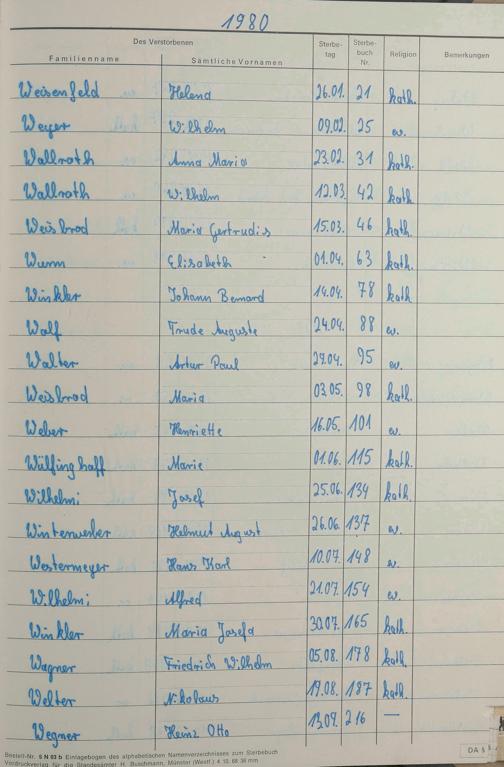 1980
Des Verstorbenen
Familienname Sämtliche Vornamen Sterbe-tag Sterbe-buch Nr. Religion Bemerkungen
Weisenfeld Helena 26.01. 21 kath.
Weyer Wilhelm 09.02. 25 ev.
Wallroth Anna Maria 23.02. 31 kath.
Wallroth Wilhelm 12.03. 42 kath.
Weisbrod Maria Gertrudis 15.03. 46 kath.
Wurm Elisabeth 01.04. 63 kath.
Winkler Johann Bernard 14.04. 78 kath.
Wolf Trude Auguste 24.04. 88 ev.
Walter Artur Paul 27.04. 95 ev.
Weisbrod Maria 03.05. 98 kath.
Weber Henriette 16.05. 101 ev.
Wülfinghoff Marie 01.06. 115 kath.
Wilhelmi Josef 25.06. 134 kath.
Winterwerber Helmut August 26.06. 137 ev.
Westermeyer Hans Karl 10.07. 148 ev.
Wilhelmi Alfred 21.07. 154 ev.
Winkler Maria Josefa 30.07. 165 kath.
Wagner Friedrich Wilhelm 05.08. 178 kath.
Welter Nikolaus 19.08. 187 kath.
Wegner Heinz Otto 13.09. 216 —
Bestell-Nr. S N 03 b Einlagebogen des alphabetischen Namenverzeichnisses zum Sterbebuch
Vordruckverlag für die Standesämter H. Buschmann, Münster (Westf.)
DA §